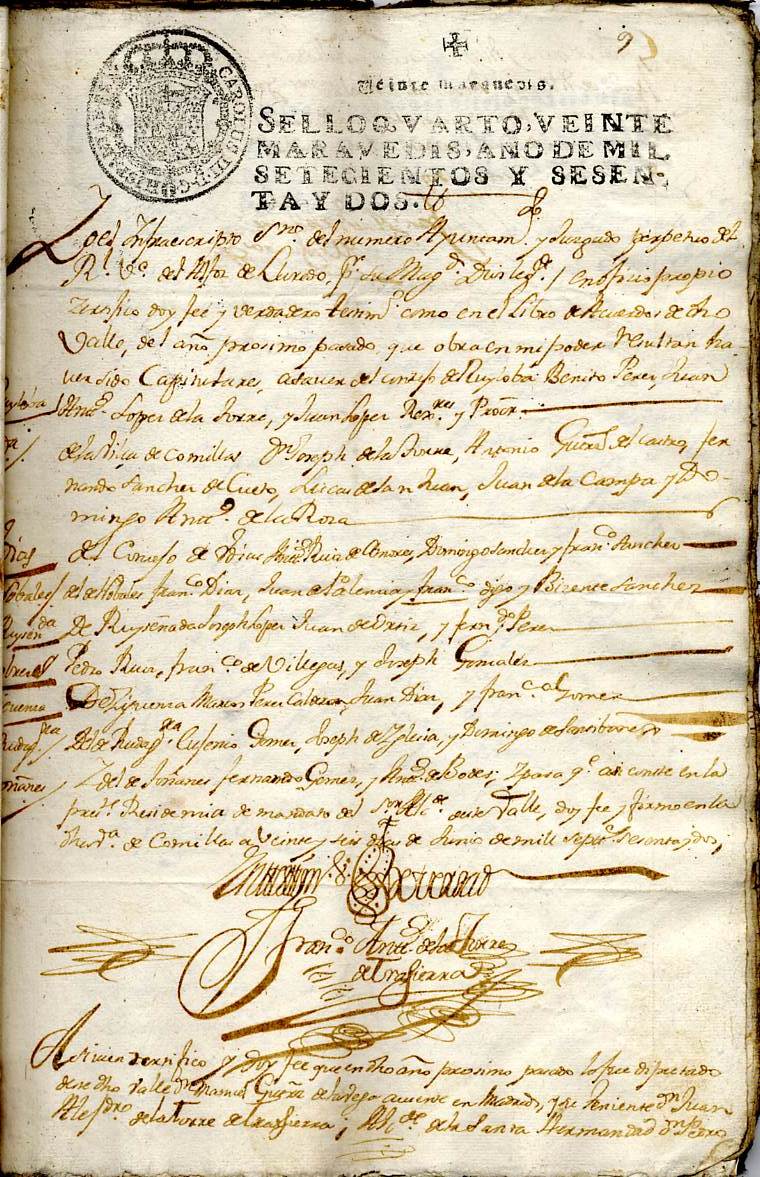 9
Veinte maravedis.
SELLO QVARTO, VEINTE
MARAVEDIS, AÑO DE MIL
SETECIENTOS Y SESEN-
TA Y DOS.
CAROLUS III D G
Yo el Infraescripto Sno. del numero Ayuntamto. y Juzgado perpetuo del
Rl. Ve. del Alfoz de Lloredo, Pr. su Magd. Dios lege. / en oficio propio
Zertifico doy fee y verdadero testimo. como en el Libro de Acuerdos de dho
Valle, del año prosimo pasado que obra en mi poder resultan ha
ver sido Capitulares, a saver del concejo de Ruyloba Benito Perez, Juan
Ruyloba / Anto. Lopez de la Torre, y Juan Lopez Rexres. y Procr.
de la Villa de Comillas Dn. Joseph de la Torre, Antonio del Castro, Fer
nando Sanchez de Cueto, Lucas de San Juan, Juan de la Campa y Do-
mingo Anto. de la Rosa
del Concejo de Domingo Sanchez y Franco. Sanchez
Cobales / del de Cobales Franco. Diaz, Juan de y Franco. digo y Bizente Sanchez
Ruyseñda De Ruyseñada Joseph Lopez Juan de Ortiz, y Ferndo. Perez
Pedro Ruiz, Franco. de Villegas, y Joseph Gonzalez
Ziguenza De Ziguenza Marcos Perez Calderon, Juan Diaz, y Franco. Gomez
Rudagra / Del de Rudagra. Eusenio Gomez, Joseph de Yglesia, y Domingo de
oñanes / Y del de Toñanes Fernando Gomez, y Anto. de Bodes; Y para qe. asi conste en la
preste. Residencia de mandato del Sor. Alce. de este Valle, doy fee y firmo en la
dha Va. de Comillas a veinte y seis dias de Junio de mill septs. sesenta y dos;
En testim.
de verdad
Franco. Anto. de la Torre
de Trasierra
Asimismo Zertifico y doy fee que en dho año prosimo pasado lo fue diputado
de este dho Valle Dn. Manuel de la Vega ausente en Madrid, y su Teniente Dn. Juan
Alejdro. de la Torre de Trassierra, Alce. de la Santa Hermandad Dn. Pedro